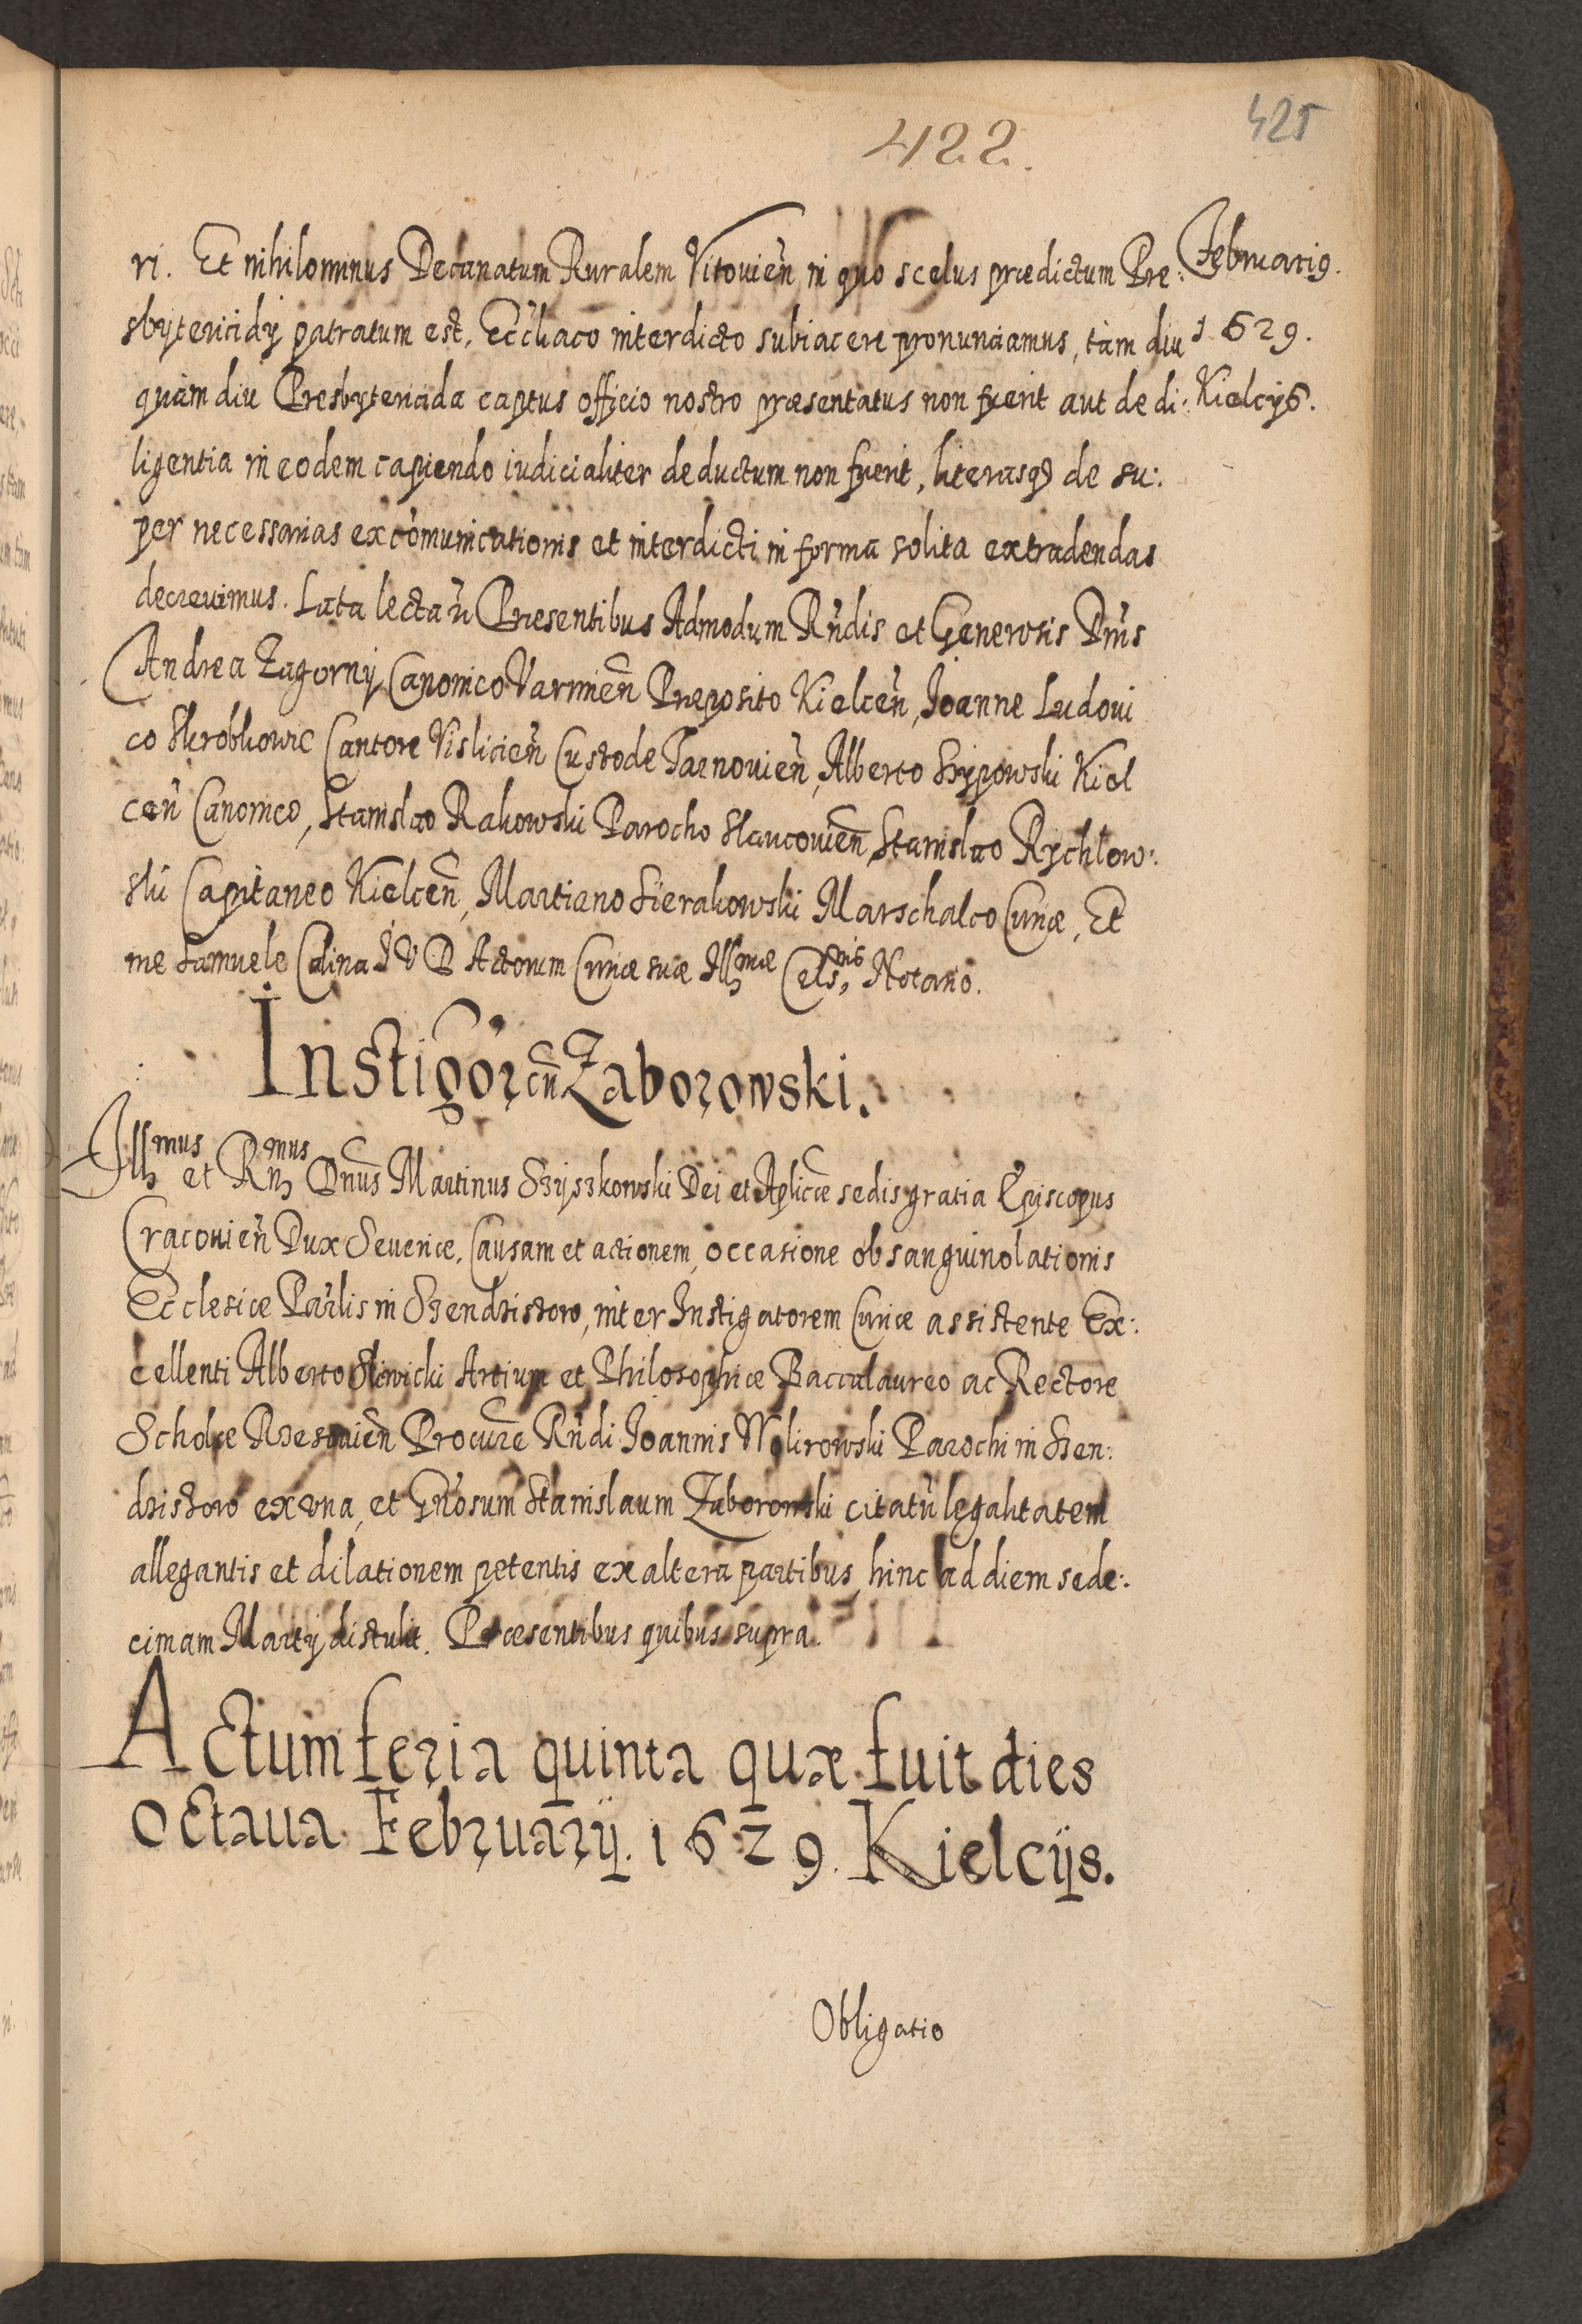 422.
425
Februarig.
1629.
Kielcijs.
ri. Et nihilominus Decanatum Ruralem Vitovien̄ in quo scelus prædictum Pre:
sbytericidij patratum est, Ecc̄liaco interdicto subiacere pronunciamus, tàm diu
quàm diu Presbytericida captus officio nostro præsentatus non fuerit aut de di:
ligentia in eodem capiendo iudicialiter deductum non fuerit, literasq3 de su:
per necessarias excōmunicationis et interdicti in forma solita extradendas
decrevimus. Lata lecta ū Præsentibus Admodum Rn̄dis et Generosis Dn̄is
Andrea Zagorny Canonico Varmien̄ Preposito Kielcen̄, Joanne Ludovi
co Skrobkowic Cantore Vislicien̄ Custode Tarnovien̄, Alberto Szypowski Kiel
cen̄ Canonico, Stanislao Rakowski Parocho Slaucovien̄, Stanislao Rychlow:
ski Capitaneo Kielcen̄, Martiano Sierakowski Marschalco Curiæ, Et
me Samuele Calina I V D Actorum Curiæ suæ Illmæ Celsnis Notario.
Instigōr cū Zaborowski.
Illmus et Rmus Dn̄us Martinus Szyszkowski Dei et Aplicæ sedis gratia Episcopus
Cracovien̄ Dux Severiæ, Causam et actionem, occasione obsanguinolationis
Ecclesiæ Par̄lis in Szendzistow, inter Instigatorem Curiæ assistente Ex:
cellenti Alberto Sliwicki Artium et Philosophiæ Baccalaureo ac Rectore
Scholæ Procur̄e Rn̄di Joannis Parochi in Szen:
dzistow ex una, et Gn̄osum Stanislaum Zaborowski citatū legalitatem
allegantis et dilationem petentis ex altera partibus, hinc ad diem sede:
cimam Martij distulit. Præsentibus quibus supra.
Actum feria quinta quæ fuit dies
octava Februarij. 1629. Kielcijs.
Obligatio